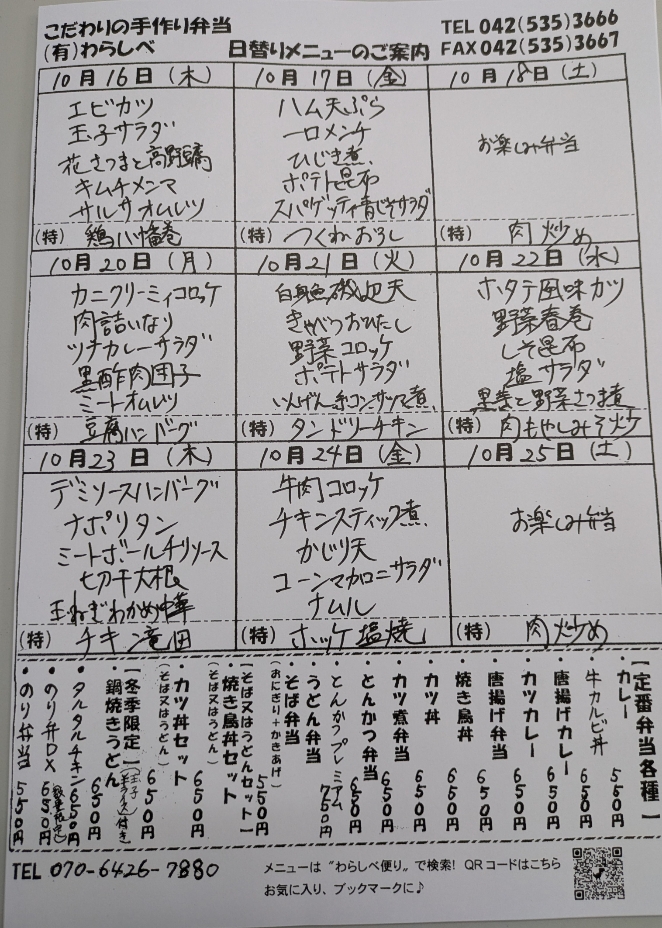 こだわりの手作り弁当
(有)わらしべ
日替りメニューのご案内
TEL 042(535)3666
FAX 042(535)3667
10月16日(木)
エビカツ
玉子サラダ
花さつまと高野豆腐
キムチメンマ
サルサオムレツ
(特) 鶏八幡巻
10月17日(金)
ハム天ぷら
一口メンチ
ひじき煮
ポテト昆布
スパゲッティ青じそサラダ
(特) つくねおろし
10月18日(土)
お楽しみ弁当
(特) 肉炒め
10月20日(月)
カニクリーミィコロッケ
肉詰いなり
ツナカレーサラダ
黒酢肉団子
ミートオムレツ
(特) 豆腐ハンバーグ
10月21日(火)
白身魚磯辺天
きゃべつおひたし
野菜コロッケ
ポテトサラダ
いんげん糸コンサツマ煮
(特) タンドリーチキン
10月22日(水)
ホタテ風味カツ
野菜春巻
しそ昆布
塩サラダ
黒巻と野菜さつま煮
(特) 肉もやしみそ炒
10月23日(木)
デミソースハンバーグ
ナポリタン
ミートボールチリソース
切干大根
玉ねぎわかめ中華
(特) チキン竜田
10月24日(金)
牛肉コロッケ
チキンスティック煮
かじり天
コーンマカロニサラダ
ナムル
(特) ホッケ塩焼
10月25日(土)
お楽しみ弁当
(特) 肉炒め
【定番弁当各種】
・カレー 550円
・牛カルビ丼 650円
・唐揚げカレー 650円
・カツカレー 650円
・唐揚げ弁当 650円
・焼き鳥丼 650円
・カツ丼 650円
・カツ煮弁当 650円
・とんかつ弁当 650円
・とんかつプレミアム 750円
・うどん弁当
・そば弁当
(おにぎり+かきあげ) 550円
【そば又はうどんセット】
・焼き鳥丼セット
(そば又はうどん) 650円
・カツ丼セット
(そば又はうどん) 650円
【冬季限定】
鍋焼きうどん
650円
・タルタルチキン 650円
・のり弁DX 650円
・のり弁当 550円
TEL 070-6426-7880
メニューは〝わらしべ便り〟で検索! QRコードはこちら
お気に入り、ブックマークに♪